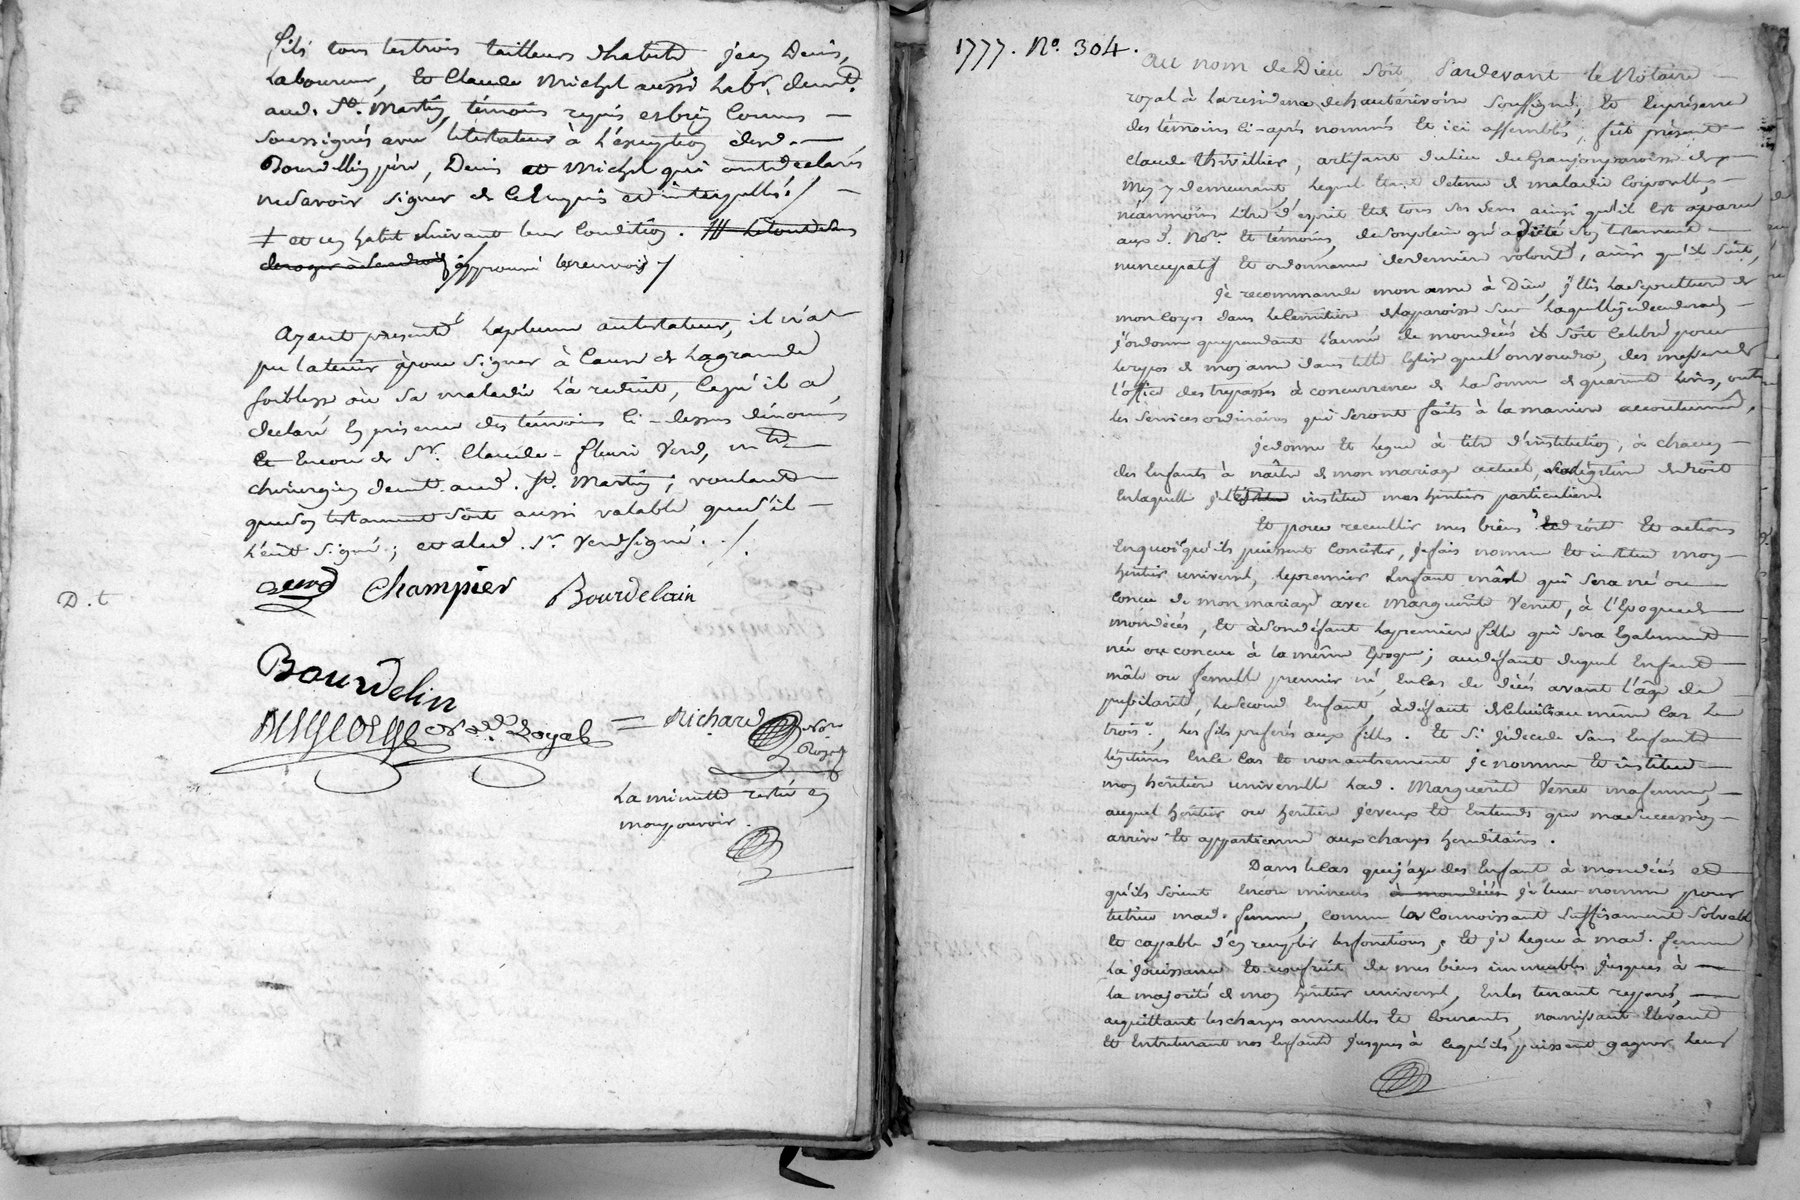 fils tous les trois tailleurs d'habits jean Denis,
Laboureur, et Claude Michel aussi Labr. demt.
aud. St. Martin, témoins requis et bien connus —
soussignés avec le testateur à l'exception desd. —
Bourdellin père, Denis et Michel qui ont declarés
ne savoir signer de ce enquis et interpellés ./ —
et un habit suivant leur condition.
approuvé le renvoi /
Ayant présenté la plume au testateur, il n'a
pu la tenir pour signer à cause de la grande
foiblesse où sa maladie l'a réduit, ce qu'il a
declaré en présence des témoins ci-dessus dénommés
et encore de Sr. Claude-fleuri Verd, mtre
chirurgien demt. aud. St. Martin; voulant
que son testament soit aussi valable que s'il —
l'eût signé; et a led. Sr. Verd signé. ./.
Verd Champier Bourdelain
D. t
Bourdelin
Royal = Richard No.re
Royal
La minutte restée en
mon pouvoir.
1777. No. 304.
Au nom de Dieu soit Pardevant le Notaire —
royal à la residence de hauterivoire soussigné, et en présence
des témoins ci-aprés nommés et ici assemblés, fut présent —
Claude Thivillier, artisant du lieu du paroisse de —
y demeurant lequel etant detenu de maladie corporelle, —
néanmoins libre d'esprit et de tous ses sens ainsi qu'il est aparu
aux d. Nore. et témoins, de son plein gré a dicté son testament —
nuncupatif et ordonnance de derniere volonté, ainsi qu'il suit,
Je recommande mon ame à Dieu, j'elis la sepulture de
mon corps dans le cemitiere de la paroisse sur laquelle je decederai —
j'ordonne que pendant l'année de mon décés il soit celebré pour
le repos de mon ame dans telle Eglise que l'on voudra, des messes de
l'office des trepassés à concurrence de la somme de quarante livres, outre
les services ordinaires qui seront faits à la maniere accoutumée,
je donne et legue à titre d'institution, à chacun —
des enfants à naître de mon mariage actuel, sa légitime de droit
en laquelle je les institue mes héritiers particuliers.
Et pour recueillir mes biens droit et actions
en quoi qu'ils puissent concister, je fais nomme et institue mon —
héritier universel, le premier enfant mâle qui sera né ou —
conçu de mon mariage avec Marguerite Verret, à l'époque de —
mon décés, et à son défaut la premiere fille qui sera egalement
née ou concue à la même Epoque; au défaut duquel enfant —
mâle ou femelle premier né, en cas de décés avant l'âge de —
pupilarité, le second enfant, à défaut de celui-ci au même cas le
trois.e, les fils preferés aux filles. Et si je decede sans enfants
légitimes en ce cas et non autrement je nomme et institue —
mon heritiere universelle lad. Marguerite Verret ma femme, —
auquel héritier ou heritiere je veux et entends que ma succession —
arrive et appartienne aux charges hereditaires.
Dans le cas que j'aye des enfant à mon décés et
qu'ils soient encore mineurs à mon décès je leur nomme pour
tutrice mad. femme, comme la connoissant suffisament solvable
et capable d'en remplir les fonctions, et je legue à mad. femme
la jouissance et usufruit de mes biens immeubles jusques à —
la majorité de mon héritier universel, en les tenant reparés, —
acquittant les charges annuelles et courants, nourrissant elevant
et entretenant nos enfants jusques à ce qu'ils puissent gagner leur